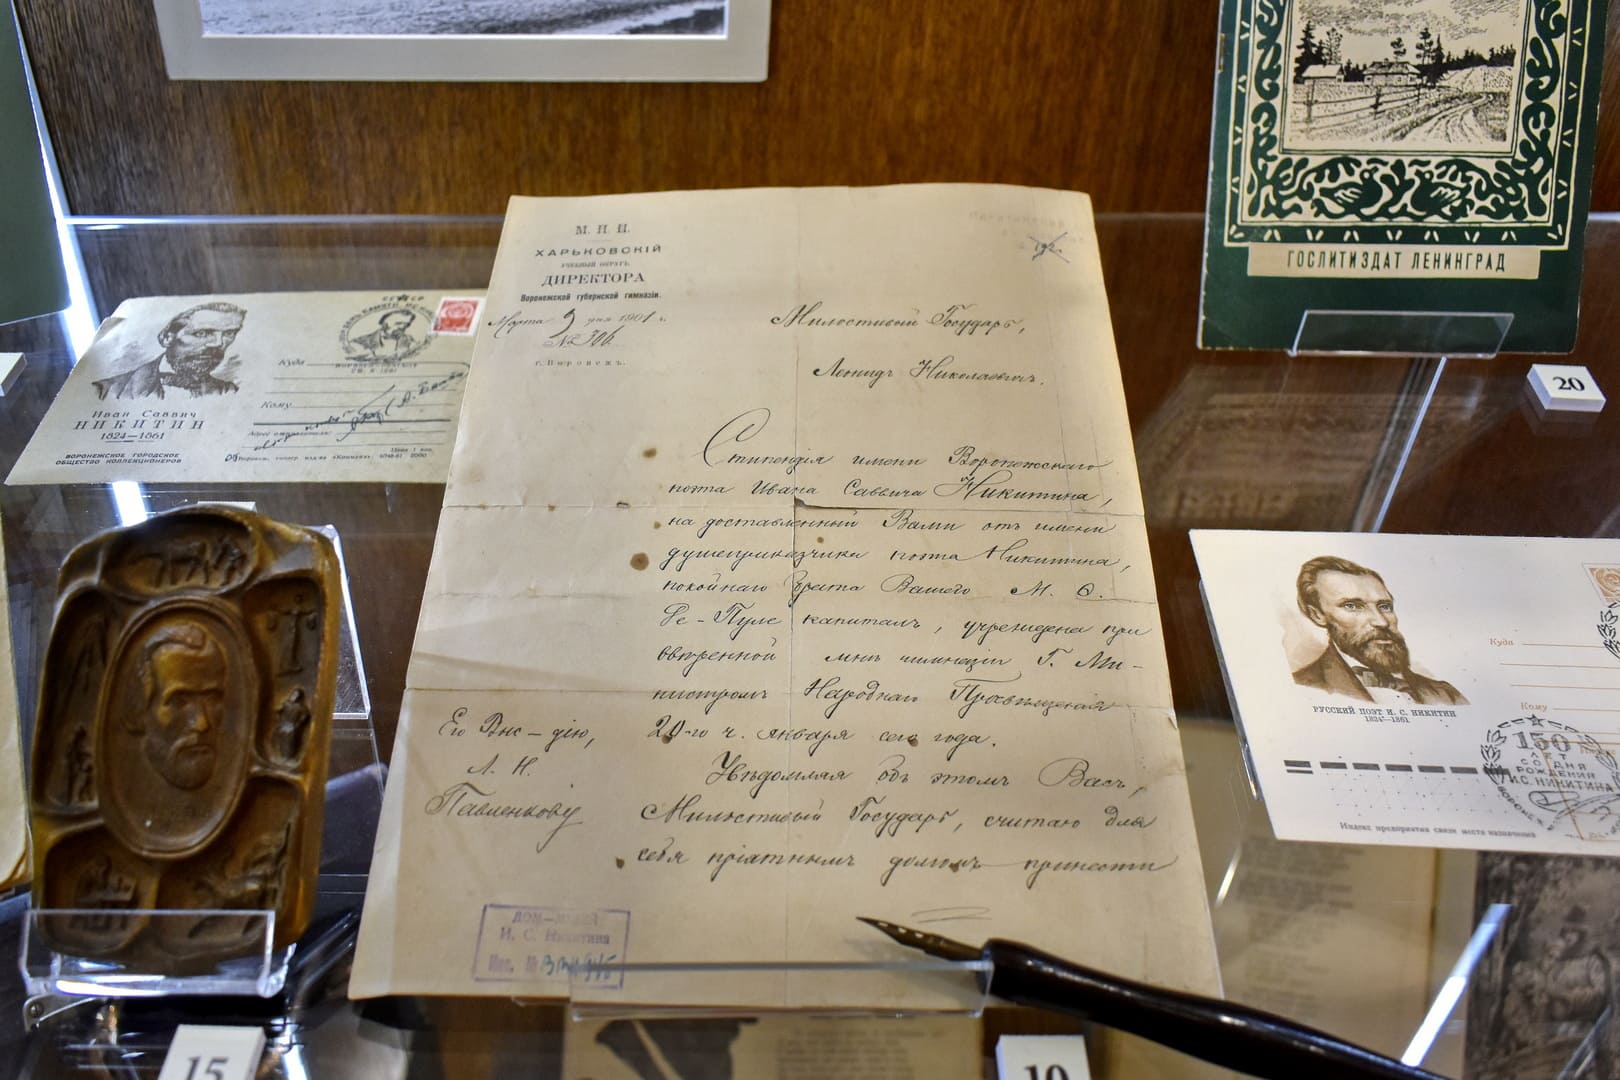 М. Н. П.
ХАРЬКОВСКІЙ
УЧЕБНЫЙ ОКРУГЪ.
ДИРЕКТОРА
Воронежской губернской гимназіи.
Марта 9 дня 1901 г.
№ 306
г. Воронежъ.
192.
Милостивый Государь,
Леонидъ Николаевичъ.
Стипендія имени Воронежскаго
поэта Ивана Саввича Никитина,
на доставленный Вами отъ имени
душеприказчика поэта Никитина,
покойнаго брата Вашего М. Ѳ.
Де-Пуле капиталъ, учреждена при
ввѣренной мнѣ гимназіи Г. Ми-
нистромъ Народнаго Просвѣщенія
20-го ч. января сего года.
Увѣдомляя объ этомъ Васъ,
Милостивый Государь, считаю для
себя пріятнымъ долгомъ принести
Его Выс-дію,
Л. Н.
Павленкову
ДОМ-МУЗЕЙ
И. С. Никитина
Инв. №
Куда
Кому
Адрес отправителя:
Иван Саввич
НИКИТИН
1824—1861
ВОРОНЕЖСКОЕ ГОРОДСКОЕ
ОБЩЕСТВО КОЛЛЕКЦИОНЕРОВ
ГОСЛИТИЗДАТ ЛЕНИНГРАД
20
Куда
Кому
РУССКИЙ ПОЭТ И. С. НИКИТИН
1824-1861
150
ЛЕТ
СО ДНЯ
РОЖДЕНИЯ
И.С. НИКИТИНА
Индекс предприятия связи места назначения
15
10